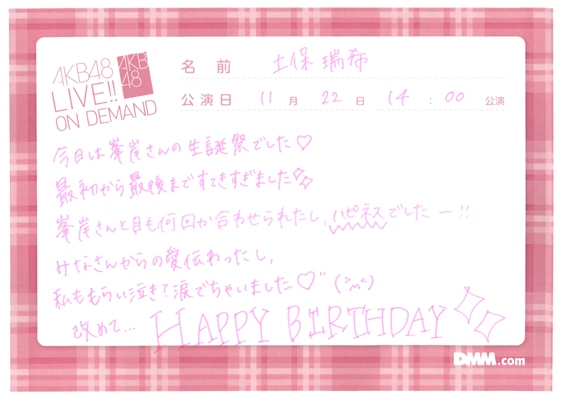 AKB48
LIVE!!
ON DEMAND
AKB
48
名前 土保瑞希
公演日 11月22日 14:00公演
今日は峯岸さんの生誕祭でした♡
最初から最後まですてきすぎました
峯岸さんと目も何回か合わせられたし、ハピネスでしたー!!
みなさんからの愛伝わったし、
私ももらい泣き?涙でちゃいました♡
改めて... HAPPY BIRTHDAY
DMM.com